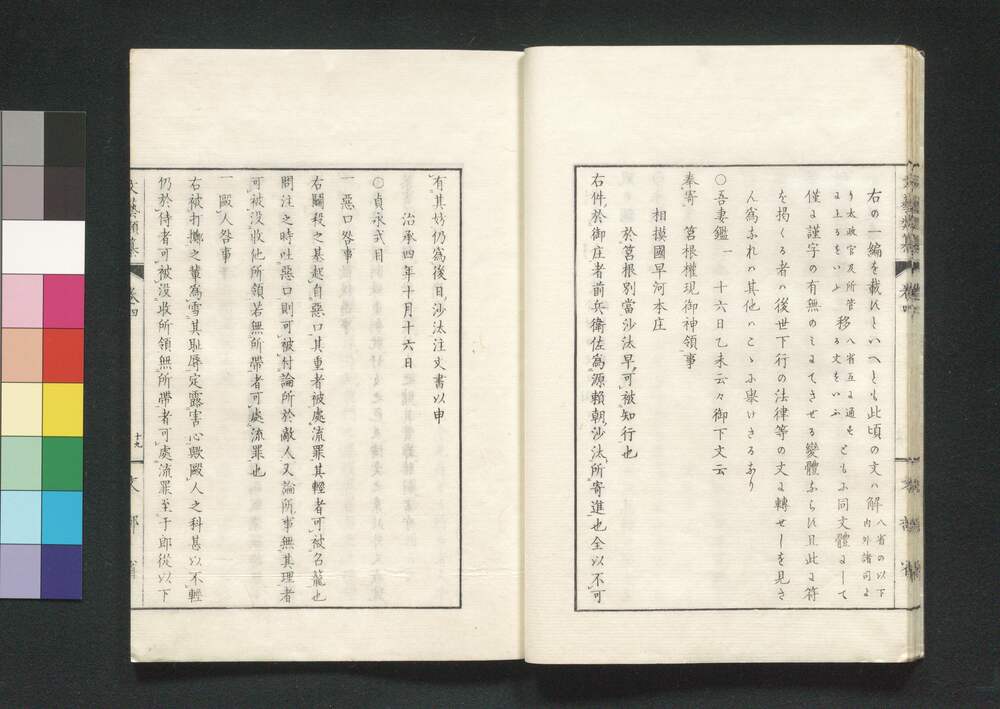 右の一編を載ばといへども此頃の文ハ解 八省の以下内外諸司よ
り太政官及所管 八省互に通ず
に上るをいふ 移 る文をいふ ともに同文體にして
僅に謹字の有無のみにてさせる變體ならば且此に符
を掲くる者ハ後世下行の法律等の文に轉せしを見さ
ん爲なれハ其他ハこゝに擧けさるなり
○吾妻鑑一 十六日乙未云々御下文云
奉寄 筥根權現御神領事
相摸國早河本庄
於筥根別當沙汰早可被知行也
右件於御庄者前兵衛佐爲源賴朝沙汰所寄進也全以不可
有其妨仍爲後日沙汰注文書以申
治承四年十月十六日
○貞永式目
一惡口咎事
右鬪殺之基起自惡口其重者被處流罪其輕者可被召籠也
問注之時吐惡口則可被付論所於敵人又論所事無其理者
可被没收他所領若無所帶者可處流罪也
一毆人咎事
右被打擲之輩爲雪其耻辱定露害心毆人之科甚以不輕
仍於侍者可被没收所領無所帶者可處流罪至于郎從以下
文藝類纂 卷四 十九 文部省